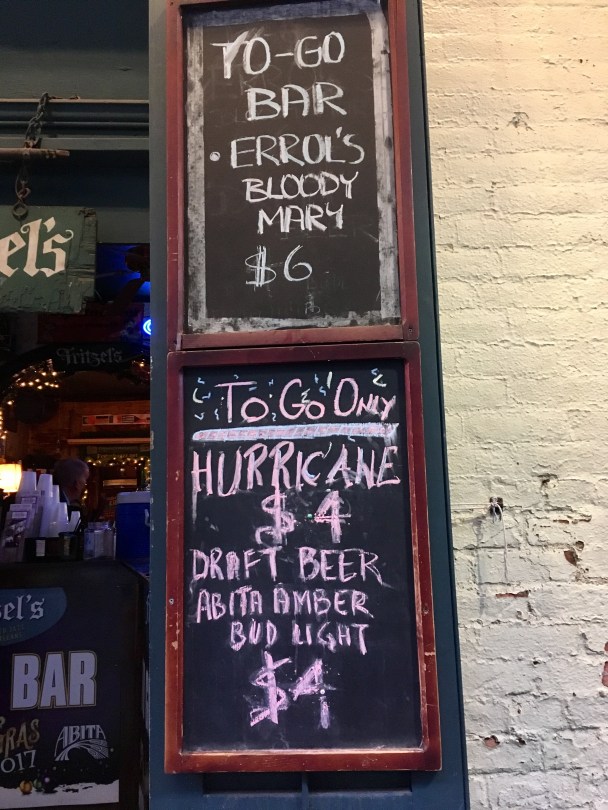 TO-GO
BAR
• ERROL'S
BLOODY
MARY
$6
To Go Only
HURRICANE
$4
DRAFT BEER
ABITA AMBER
BUD LIGHT
$4
el's
Fritzel's
el's
BAR
RAS
017
ABITA